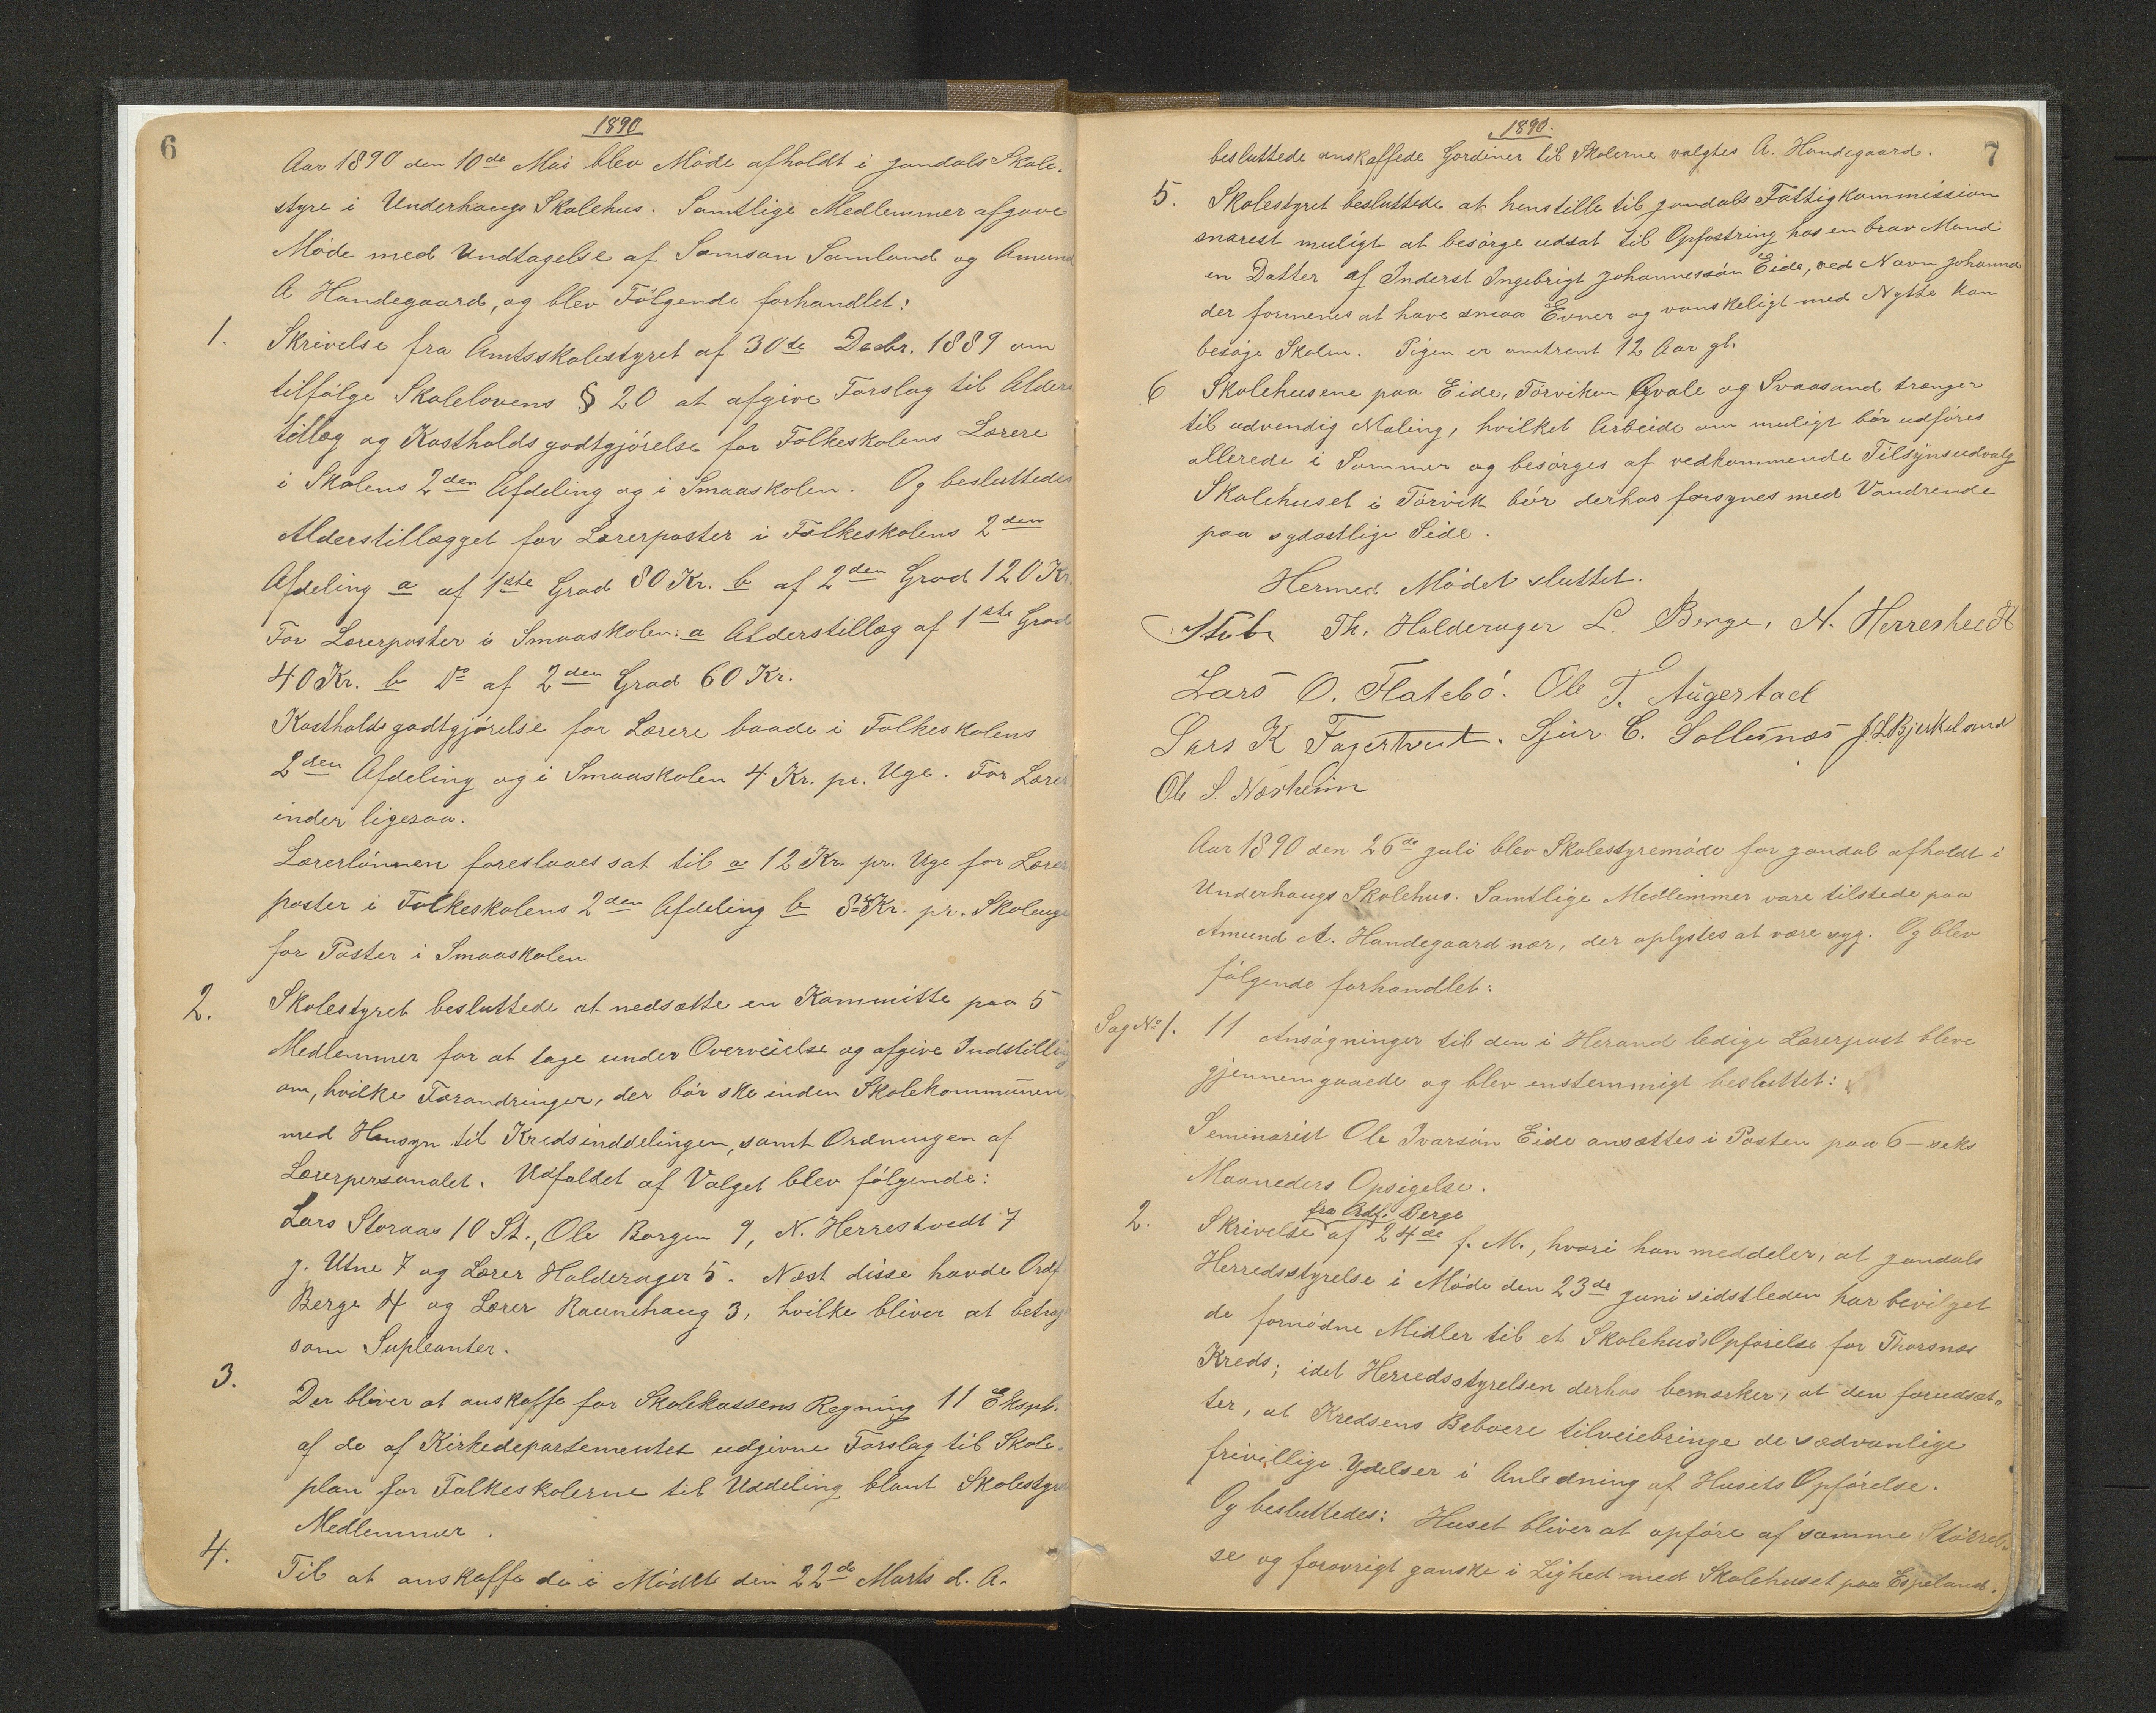 6
1890
Aar 1890 den 10de Mai blev Møde afholdt i Jondals Skole-
styre i Underhaugs Skolehus. Samtlige Medlemmer afgave
Møde med Undtagelse af Samson Samland og Amund
A Handegaard, og blev Følgende forhandlet:
1. Skrivelse fra Amtsskolestyret af 30te Decbr. 1889 om
tilfølge Skolelovens § 20 at afgive Forslag til Alders
tillæg og Kostholdsgodtgjørelse for Folkeskolens Lærere
i Skolens 2den Afdeling og i Smaaskolen. Og besluttedes
Alderstillægget for Lærerposter i Folkeskolens 2den
Afdeling a af 1ste Grad 80 Kr. b af 2den Grad 120 Kr.
For Lærerposter i Smaaskolen: a Alderstillæg af 1ste Grad
40 Kr. b Do af 2den Grad 60 Kr.
Kostholdsgodtgjørelse for Lærere baade i Folkeskolens
2den Afdeling og i Smaaskolen 4 Kr. pr. Uge. For Lærer
inder ligesaa.
Lærerlønnen foreslaaes sat til a 12 Kr. pr. Uge for Lærer
poster i Folkeskolens 2den Afdeling b 8 Kr. pr. Skoleuge
for Poster i Smaaskolen
2. Skolestyret besluttede at nedsætte en Kommitte paa 5
Medlemmer for at tage under Overveielse og afgive Indstilling
om, hvilke Forandringer, der bør ske inden Skolekommunen
med Hensyn til Kredsinddelingen, samt Ordningen af
Lærerpersonalet. Udfaldet af Valget blev følgende:
Lars Storaas 10 St., Ole Borgen 9, N. Herrestvedt 7
J. Utne 7 og Lærer Halderager 5. Næst disse havde Ordf.
Berge 4 og Lærer Raunehaug 3, hvilke bliver at betrag
som Supleanter.
3. Der bliver at anskaffe for Skolekassens Regning 11 Ekspl.
af de af Kirkedepartementet udgivne Forslag til Skole-
plan for Folkeskolerne til Uddeling blant Skolestyrets
Medlemmer.
4. Til at anskaffe de i Mødet den 22de Marts d. A.
7
1890.
besluttede anskaffede Gardiner til Skolerne valgtes A. Handegaard.
5. Skolestyret besluttede at henstille til Jondals Fattigkommission
snarest muligt at besørge udsat til Opfostring hos en brav Mand
en Datter af Inderst Ingebrigt Johannessøn Eide, ved Navn Johanna
der formenes at have smaa Evner og vanskeligt med Nytte kan
besøge Skolen. Pigen er omtrent 12 Aar gl.
6 Skolehusene paa Eide, Tørviken Qvale og Svaasand trænger
til udvendig Maling, hvilket Arbeide om muligt bør udføres
allerede i Sommer og besørges af vedkommende Tilsynsudvalg
Skolehuset i Tørvik bør derhos forsynes med Vandrende
paa sydøstlige Side.
Hermed Mødet sluttet.
Th. Halderager L. Berge, N. Herrestvedt
Lars O. Flatebø. Ole T. Augestad
Lars K Fagertveit. Sjur C. Sollesnæs J. L. Bjerkeland
Ole S. Næsheim
Aar 1890 den 26de Juli blev Skolestyremøde for Jondal afholdt i
Underhaugs Skolehus. Samtlige Medlemmer vare tilstede paa
Amund A. Handegaard nær, der oplystes at være syg. Og blev
følgende forhandlet:
Sag No 1. 11 Ansøgninger til den i Herand ledige Lærerpost bleve
gjennemgaaede og blev enstemmigt besluttet:
Seminarist Ole Ivarsøn Eide ansættes i Posten paa 6 - seks
Maaneders Opsigelse.
fra Ordf. Berge
2. Skrivelse af 24de f. M., hvori han meddeler, at Jondals
Herredsstyrelse i Møde den 23de Juni sidstleden har bevilget
de fornødne Midler til et Skolehus's Opførelse for Thorsnæs
Kreds; idet Herredsstyrelsen derhos bemærker, at den forudsæt-
ter, at Kredsens Beboere tilveiebringe de sædvanlige
frivillige Ydelser i Anledning af Husets Opførelse.
Og besluttedes: Huset bliver at opføre af samme Størrel-
se og forøvrigt ganske i Lighed med Skolehuset paa Espeland.